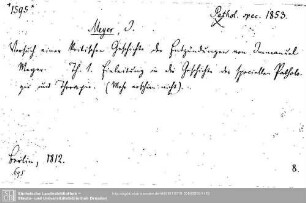 "1595"
Pathol. spec. 1853.
Meyer, J.
Versuch einer kritischen Geschichte der Entzündungen von Immanuel
Meyer. Th. 1. Einleitung in die Geschichte der speciellen Patholo-
gie und Therapie. (Mehr erschien nicht).
Berlin, 1812.
8.
Sächsische Landesbibliothek –
Staats- und Universitätsbibliothek Dresden